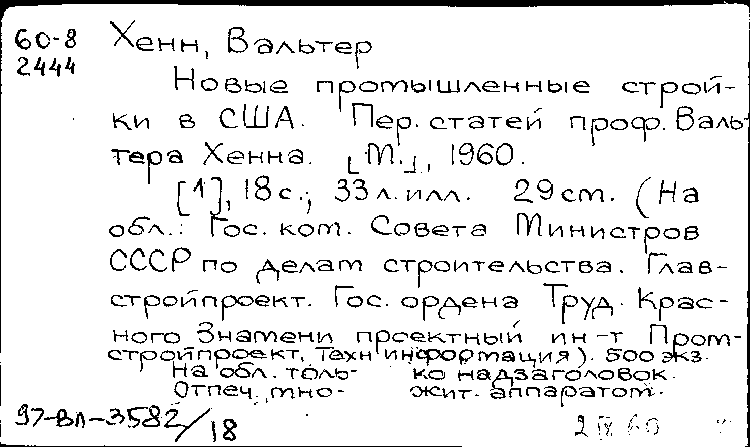 60-8 Хенн, Вальтер
2444
Новые промышленные строй-
ки в США. Пер. статей проф. Валь-
тера Хенна. [М.], 1960.
[1], 18 с.; 33 л. илл. 29 cm. (На
обл.: Гос. ком. Совета Министров
СССР по делам строительства. Глав-
стройпроект. Гос. ордена Труд. Крас-
ного Знамени проектный ин-т Пром-
стройпроект, Техн информация). 500 экз.
На обл. толь- ко надзаголовок.
Отпеч. мно- жит. аппаратом.
97-ВЛ-3582/18 2 IX 60